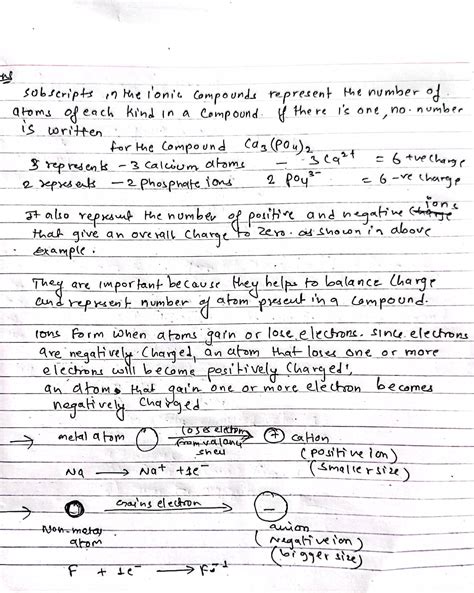 Ans
subscripts in the ionic compounds represent the number of
atoms of each kind in a compound. if there is one, no number
is written
for the compound Ca₃(PO₄)₂
3 represents - 3 calcium atoms - 3 Ca²⁺ = 6 +ve charge
2 represents - 2 phosphate ions 2 PO₄³⁻ = 6 -ve charge
It also represent the number of positive and negative ions
that give an overall charge to zero. as shown in above
example.
They are important because they helps to balance charge
and represent number of atom present in a compound.
Ions form when atoms gain or lose electrons. since electrons
are negatively charged, an atom that loses one or more
electrons will become positively charged;
an atom that gain one or more electron becomes
negatively charged.
→ metal atom loses electron from valany shell + cation
(positive ion)
(smaller size)
Na → Na⁺ + 1e⁻
→ gains electron −
Non-metal atom anion
(negative ion)
(bigger size)
F + 1e⁻ → F⁻¹